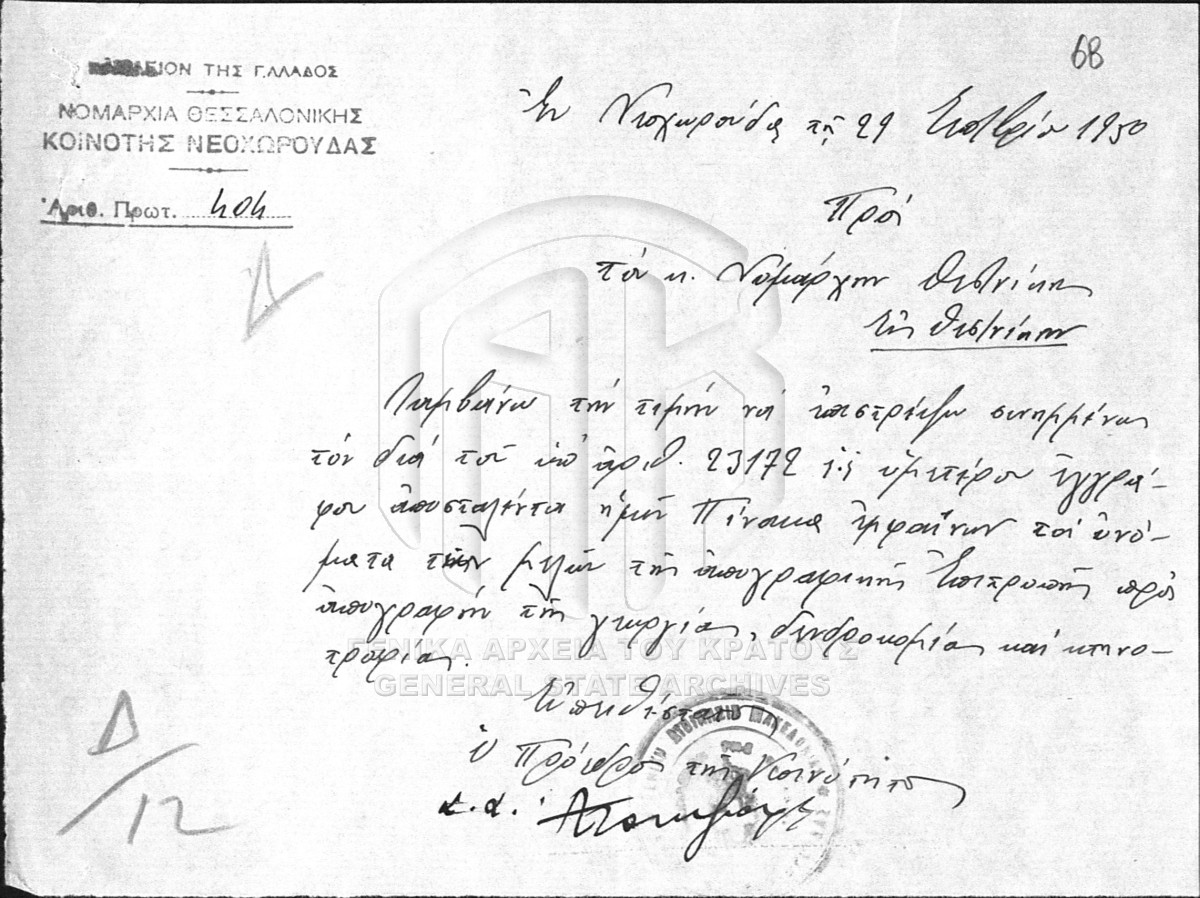 68
ΒΑΣΙΛΕΙΟΝ ΤΗΣ ΕΛΛΑΔΟΣ
ΝΟΜΑΡΧΙΑ ΘΕΣΣΑΛΟΝΙΚΗΣ
ΚΟΙΝΟΤΗΣ ΝΕΟΧΩΡΟΥΔΑΣ
Ἀριθ. Πρωτ. 404
Ἐν Νεοχωρούδα τῇ 29 Σεπτβρίου 1950
Πρὸς
τὸν κ. Νομάρχην Θεσ/νίκης
Εἰς Θεσ/νίκην
Λαμβάνω τὴν τιμὴν νὰ ἐπιστρέψω συνημμένως
τὸν διὰ τοῦ ὑπ' ἀριθ. 23172 ὑμετέρου ἐγγρά-
φου ἀποσταλέντα ἡμῖν Πίνακα ἐμφαίνων τὰ ὀνό-
ματα τῶν μελῶν τῆς ἀπογραφικῆς Ἐπιτροπῆς πρὸς
ἀπογραφὴν τῆς γεωργίας, δενδροκομίας καὶ κτηνο-
τροφίας.
Εὐπειθέστατος
Ὁ Πρόεδρος τῆς Κοινότητος
Δ
Δ/12
ΓΕΝΙΚΑ ΑΡΧΕΙΑ ΤΟΥ ΚΡΑΤΟΥΣ
GENERAL STATE ARCHIVES